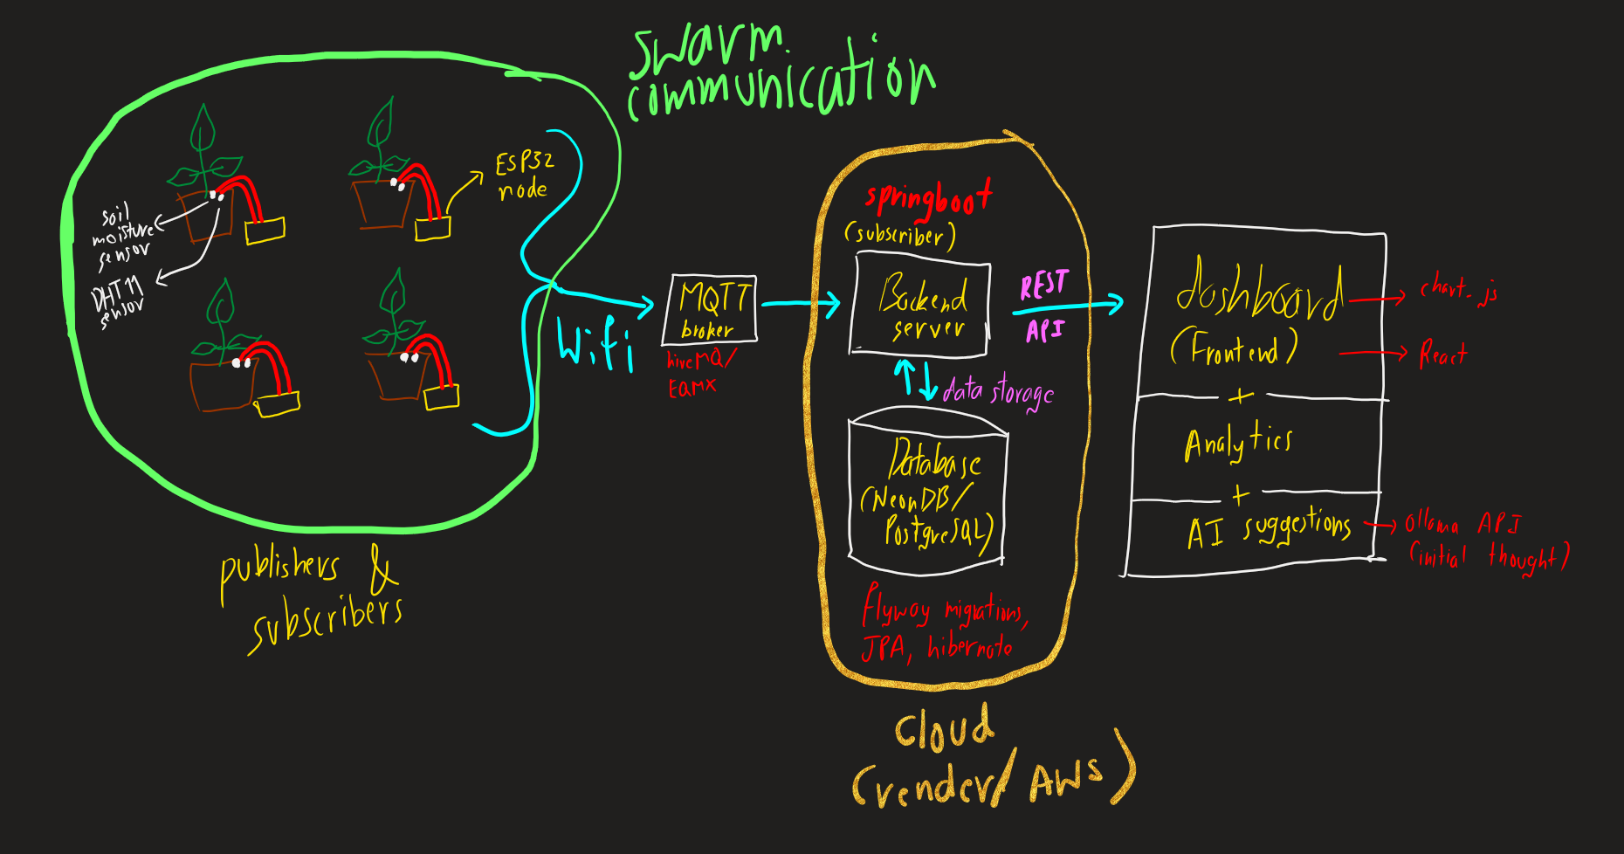 swarm
communication
ESP32
node
soil
moisture
sensor
DHT11
sensor
publishers &
subscribers
Wifi
MQTT
broker
hiveMQ/
EQMX
springboot
(subscriber)
Backend
server
REST
API
data storage
Database
(NeonDB/
PostgreSQL)
flyway migrations,
JPA, hibernate
cloud
(render/AWS)
dashboard
(Frontend)
+
Analytics
+
AI suggestions
chart.js
React
ollama API
(initial thought)